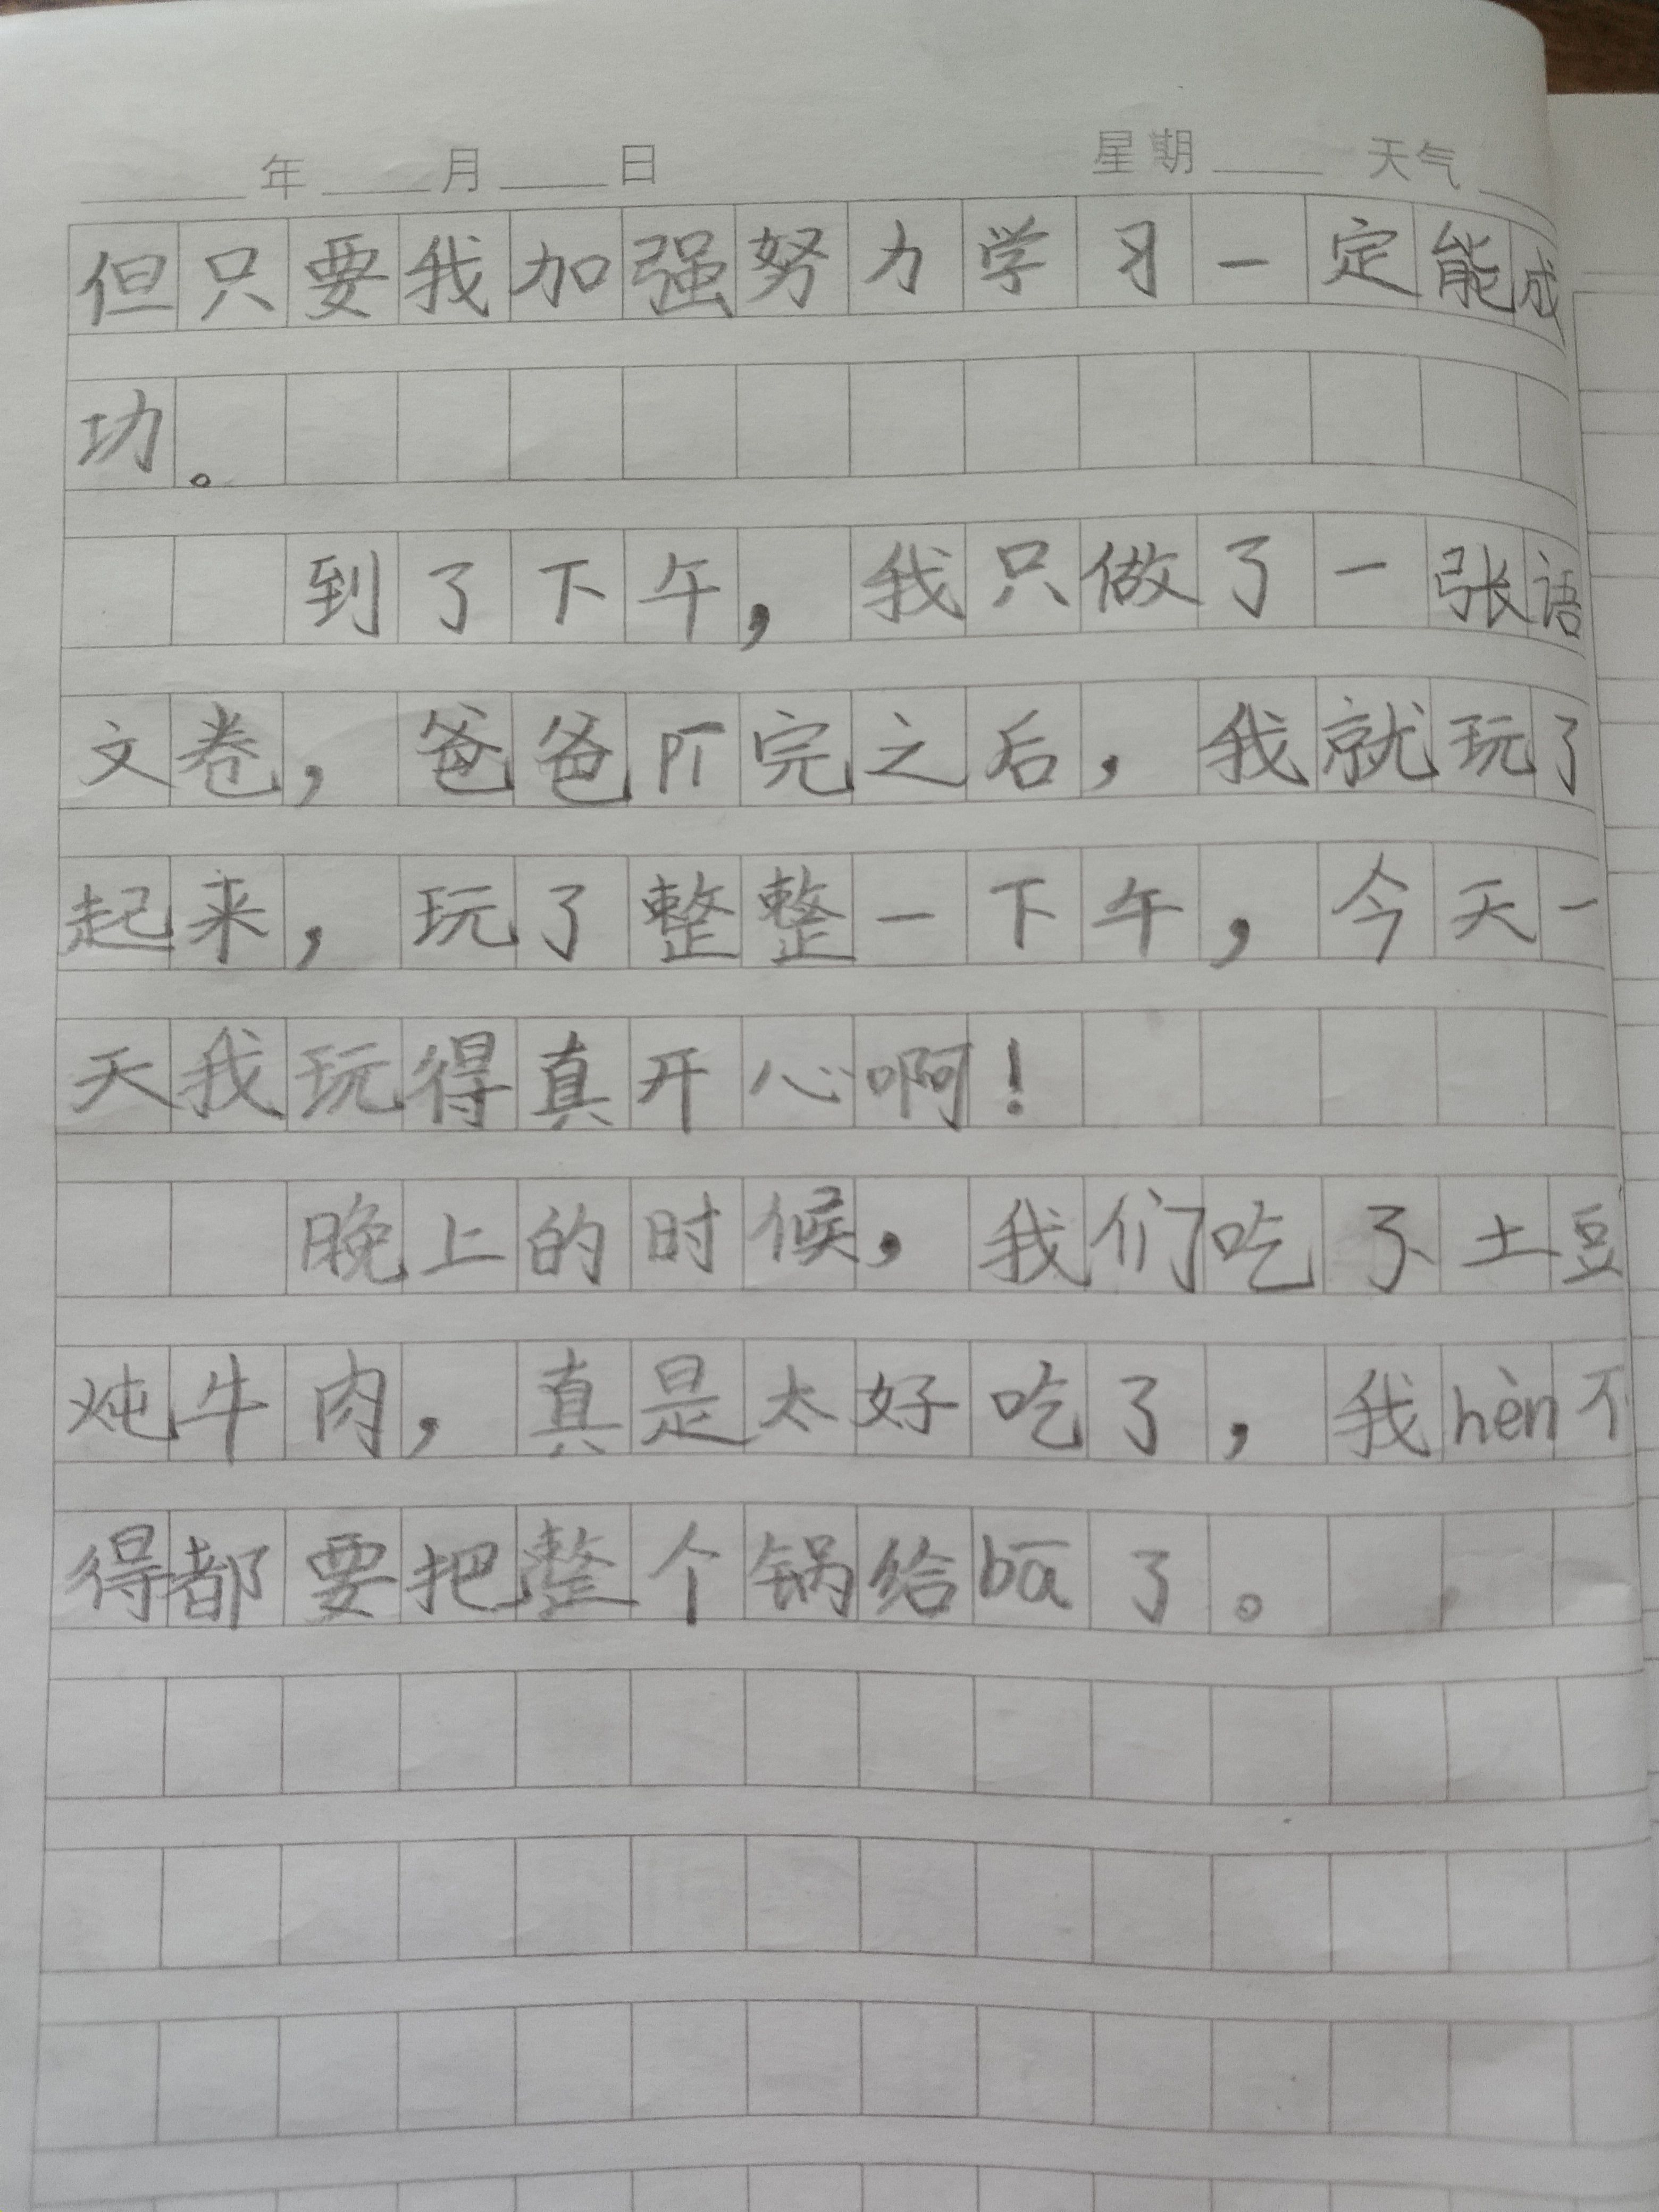 年 月 日 星期 天气
但只要我加强努力学习一定能成
功。
到了下午，我只做了一张语
文卷，爸爸pī完之后，我就玩了
起来，玩了整整一下午，今天一
天我玩得真开心啊！
晚上的时候，我们吃了土豆
炖牛肉，真是太好吃了，我hèn不
得都要把整个锅给bā了。